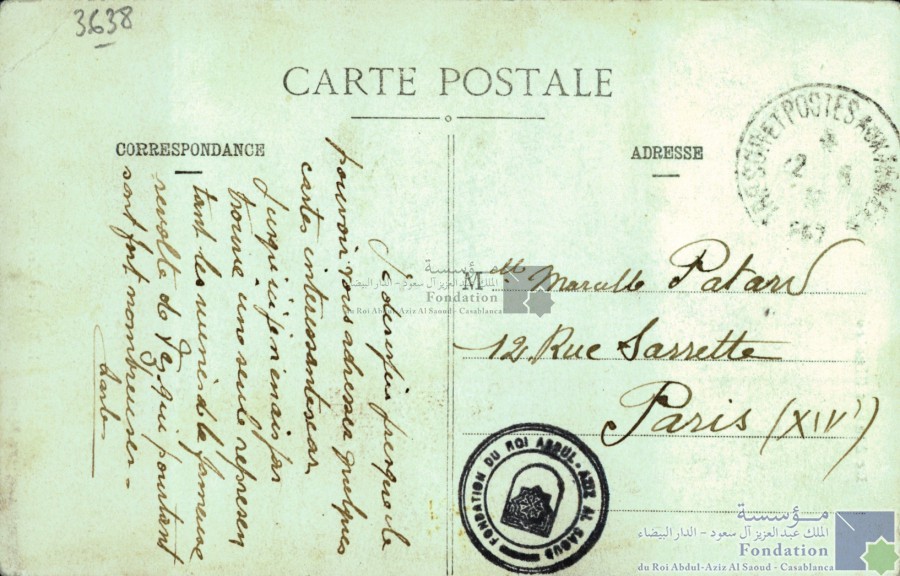 3638
CARTE POSTALE
CORRESPONDANCE
ADRESSE
TRESOR ET POSTES AUX ARMEES
pouvoir vous adresser quelques
cartes interessantes car
jusqu'ici je n'en ai pas
trouvé une seule represen
tant les ruines de la fameuse
revolte de Fez qui pourtant
sont fort nombreuses -
Mlle Marcelle Patard
12 Rue Sarrette
Paris (XIVe)
مؤسسة
الملك عبد العزيز آل سعود - الدار البيضاء
Fondation
du Roi Abdul-Aziz Al Saoud - Casablanca
FONDATION DU ROI ABDUL-AZIZ AL SAOUD
مؤسسة
الملك عبد العزيز آل سعود - الدار البيضاء
Fondation
du Roi Abdul-Aziz Al Saoud - Casablanca